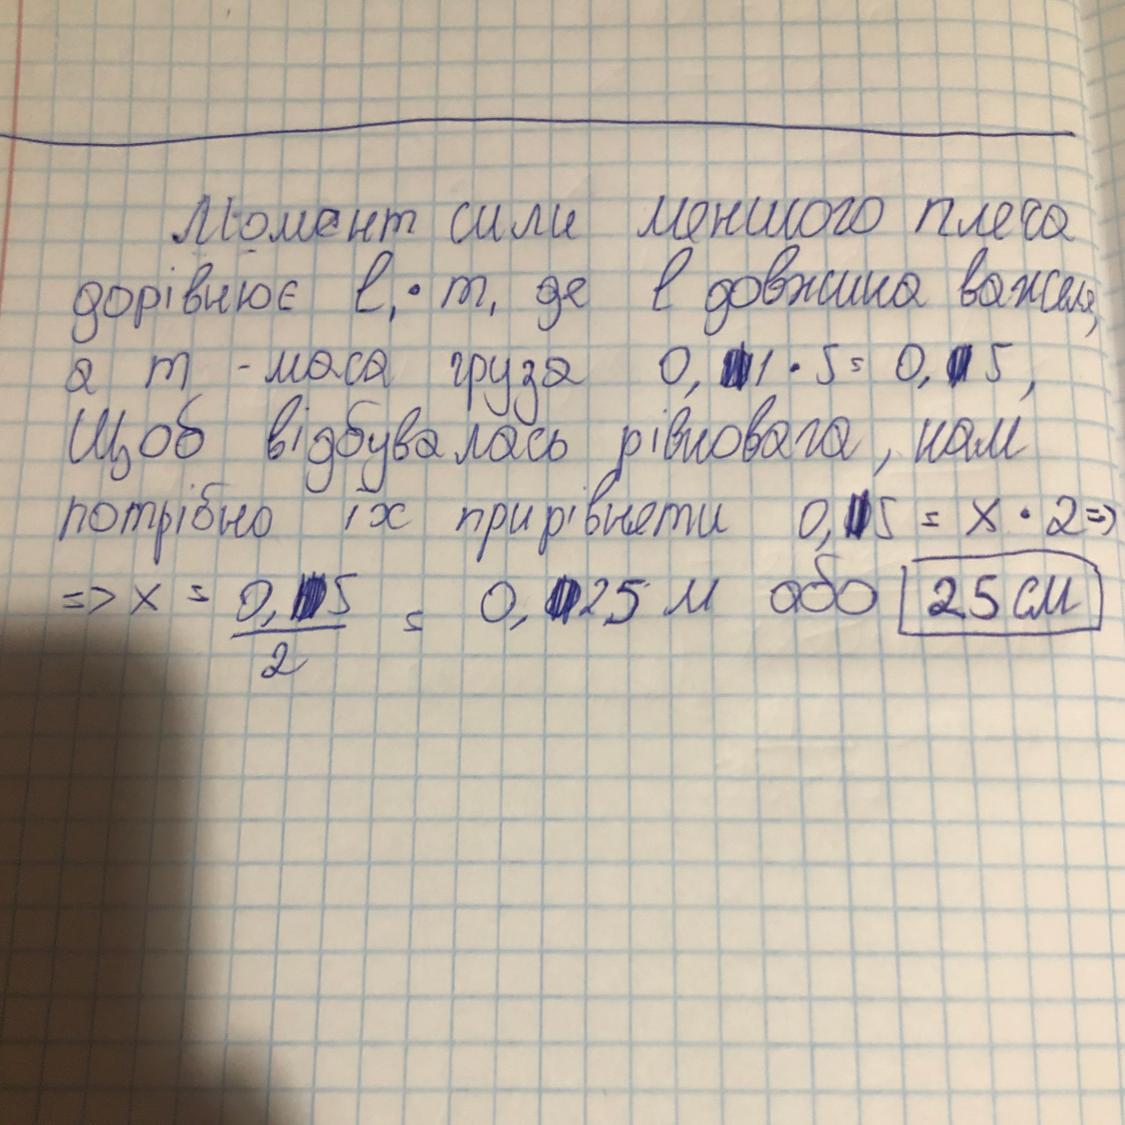 Момент сили меншого плеча
дорівнює l₁ · m, де l довжина важеля,
а m - маса груза 0,1 · 5 = 0,5,
Щоб відбувалась рівновага, нам
потрібно їх прирівнети 0,5 = x · 2 =>
=> x = 0,5/2 = 0,25 м або 25 см